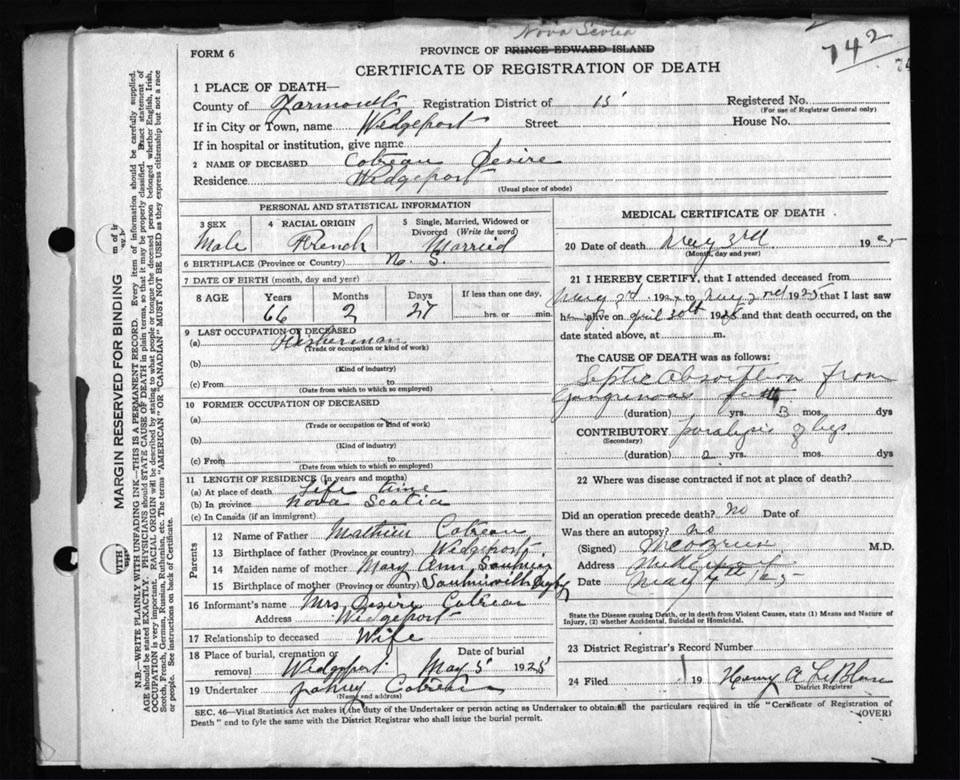 Nova Scotia
FORM 6
PROVINCE OF PRINCE EDWARD ISLAND
742
CERTIFICATE OF REGISTRATION OF DEATH
1 PLACE OF DEATH—
County of Yarmouth Registration District of 15 Registered No.
(For use of Registrar General only)
If in City or Town, name Wedgeport Street House No.
If in hospital or institution, give name
2 NAME OF DECEASED Cotreau Desire
Residence Wedgeport
(Usual place of abode)
PERSONAL AND STATISTICAL INFORMATION
3 SEX 4 RACIAL ORIGIN 5 Single, Married, Widowed or Divorced (Write the word)
Male French Married
6 BIRTHPLACE (Province or Country) N. S.
7 DATE OF BIRTH (month, day and year)
8 AGE Years Months Days If less than one day,
66 2 27 hrs. or min.
9 LAST OCCUPATION OF DECEASED
(a) Fisherman
(Trade or occupation or kind of work)
(b)
(Kind of industry)
(c) From to
(Date from which to which so employed)
10 FORMER OCCUPATION OF DECEASED
(a)
(Trade or occupation or kind of work)
(b)
(Kind of industry)
(c) From to
(Date from which to which so employed)
11 LENGTH OF RESIDENCE (In years and months)
(a) At place of death Life time
(b) In province Nova Scotia
(c) In Canada (if an immigrant)
Parents
12 Name of Father Mathieu Cotreau
13 Birthplace of father (Province or country) Wedgeport
14 Maiden name of mother Mary Ann Saulnier
15 Birthplace of mother (Province or country) Saulnierville Digby
16 Informant's name Mrs Desire Cotreau
Address Wedgeport
17 Relationship to deceased Wife
18 Place of burial, cremation or removal Date of burial
Wedgeport May 5 1925
19 Undertaker Cotreau
(Name and address)
MEDICAL CERTIFICATE OF DEATH
20 Date of death May 3rd 1925
(Month, day and year)
21 I HEREBY CERTIFY, that I attended deceased from
May 3rd 192 to May 2nd 1925 that I last saw
h alive on April 30th 1925 and that death occurred, on the
date stated above, at m.
The CAUSE OF DEATH was as follows:
Septic absorption from
Gangrenous feet
(duration) yrs. 3 mos. dys
CONTRIBUTORY paralysis of legs
(Secondary)
(duration) 2 yrs. mos. dys
22 Where was disease contracted if not at place of death?
Did an operation precede death? No Date of
Was there an autopsy? No
(Signed) M.D.
Address
Date May 4th 1925
State the Disease causing Death, or in death from Violent Causes, state (1) Means and Nature of
Injury, (2) whether Accidental, Suicidal or Homicidal.
23 District Registrar's Record Number
24 Filed 19 Henry A LeBlanc
District Registrar
SEC. 46—Vital Statistics Act makes it the duty of the Undertaker or person acting as Undertaker to obtain all the particulars required in the "Certificate of Registration of
Death" and to fyle the same with the District Registrar who shall issue the burial permit.
(OVER)
MARGIN RESERVED FOR BINDING
N.B.—WRITE PLAINLY WITH UNFADING INK—THIS IS A PERMANENT RECORD. Every item of information should be carefully supplied.
AGE should be stated EXACTLY. PHYSICIANS should STATE CAUSE OF DEATH in plain terms, so that it may be properly classified. Exact statement of
OCCUPATION is very important. RACIAL ORIGIN will be described by stating to what people or tongue the deceased person belonged whether English, Irish,
Scotch, French, German, Russian, Ruthenian, etc. The terms "AMERICAN" OR "CANADIAN" MUST NOT BE USED as they express citizenship but not a race
or people. See instructions on back of Certificate.